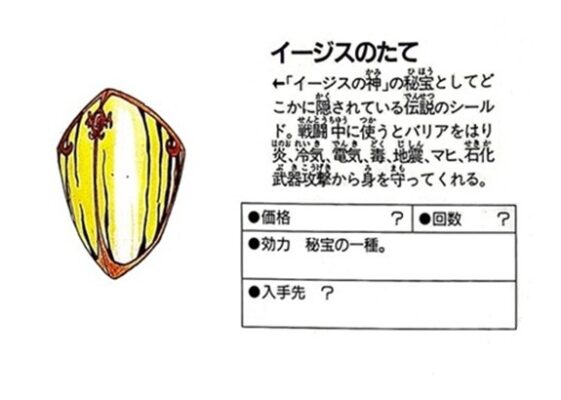 イージスのたて
←「イージスの神」の秘宝としてど
こかに隠されている伝説のシール
ド。戦闘中に使うとバリアをはり
炎、冷気、電気、毒、地震、マヒ、石化
武器攻撃から身を守ってくれる。
●価格 ? ●回数 ?
●効力 秘宝の一種。
●入手先 ?